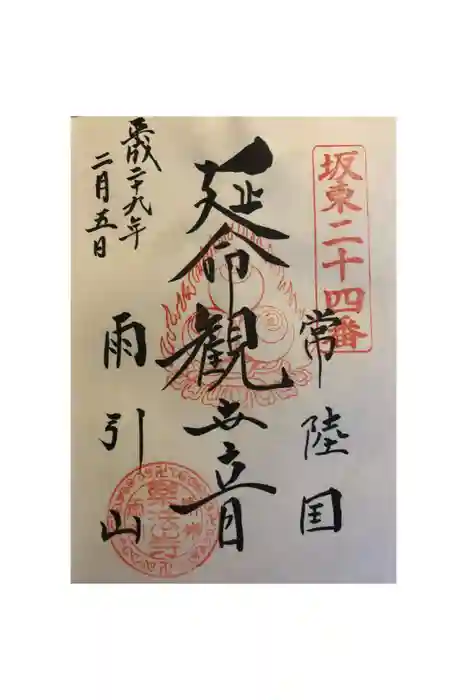 坂東二十四番
常陸国
延命観世音
雨引山
平成二十九年
二月五日